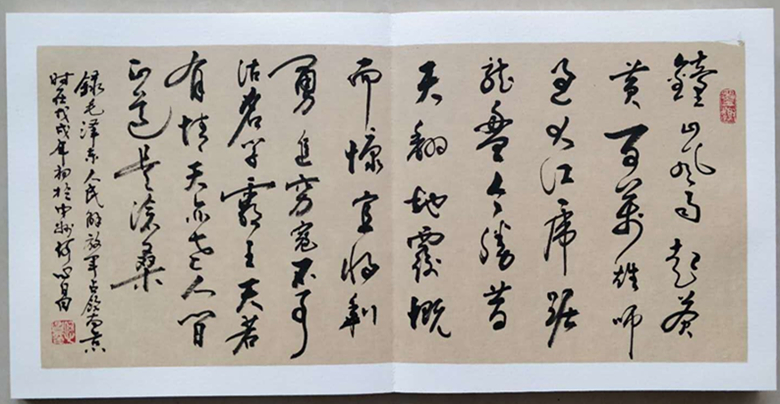 鐘山风雨起蒼
黄百萬雄师
過大江虎踞
龍盤今勝昔
天翻地覆慨
而慷宜将剩
勇追窮寇不可
沽名学霸王天若
有情天亦老人间
正道是滄桑
録毛澤东人民解放军占领南京
时在戊戌年初於中州